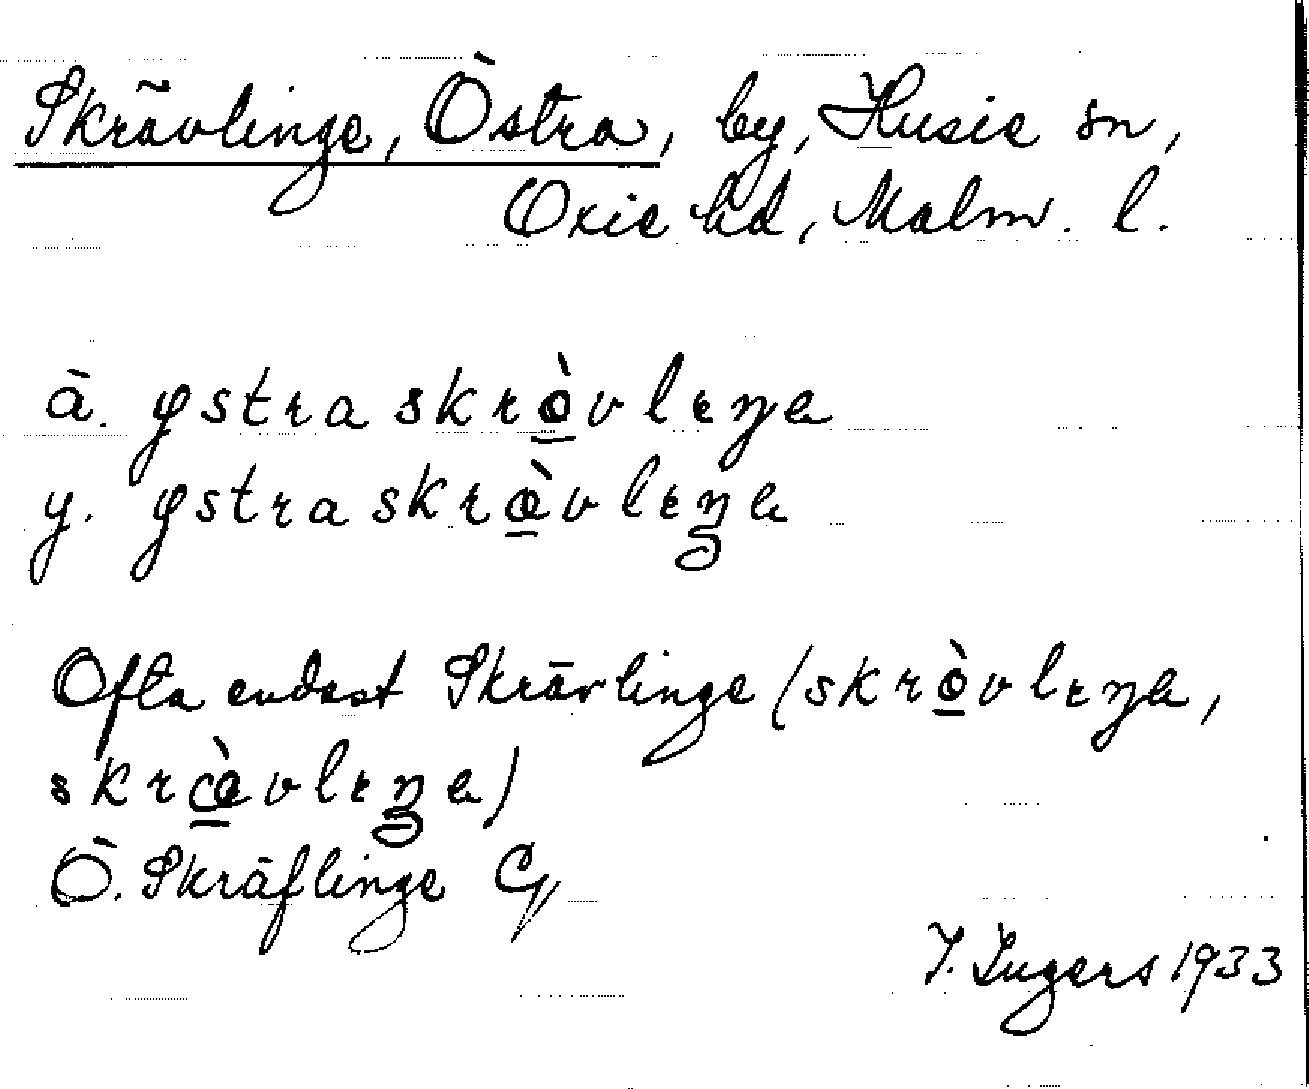 Skrävlinge, Östra, by, Husie sn,
Oxie hd, Malm. l.
ä. ɏstra skrò̠vlɩŋe
y. ɏstra skræ̠̀vlɩŋe
Ofta endast Skrävlinge (skrò̠vlɩŋe,
skræ̠̀vlɩŋe)
Ö. Skräflinge
I. Ingers 1933